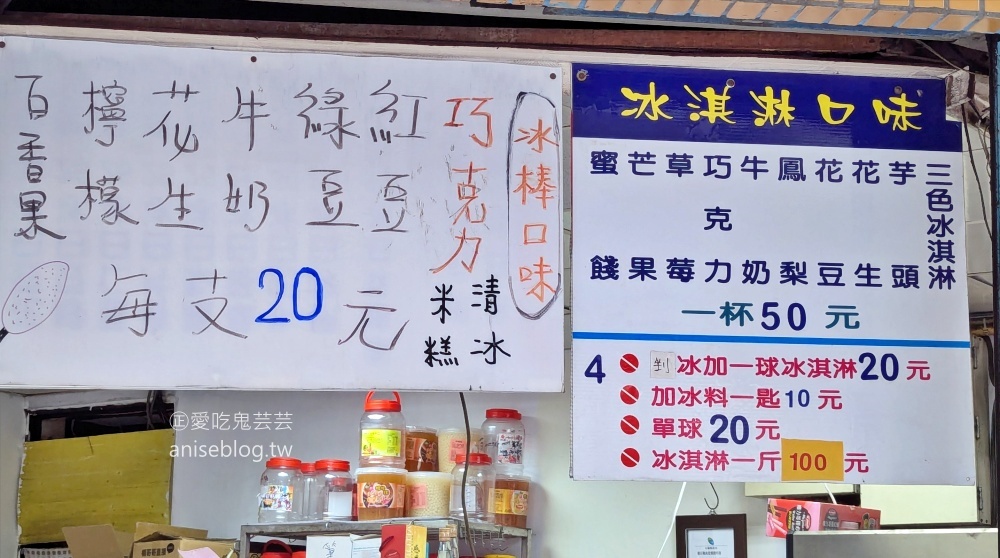 冰棒口味
巧克力
清冰
米糕
紅豆
綠豆
牛奶
花生
檸檬
百香果
每支20元
冰淇淋口味
三色冰淇淋
芋頭
花生
花豆
鳳梨
牛奶
巧克力
草莓
芒果
蜜餞
一杯50元
4
剉冰加一球冰淇淋20元
加冰料一匙10元
單球20元
冰淇淋一斤100元
㊣愛吃鬼芸芸
aniseblog.tw